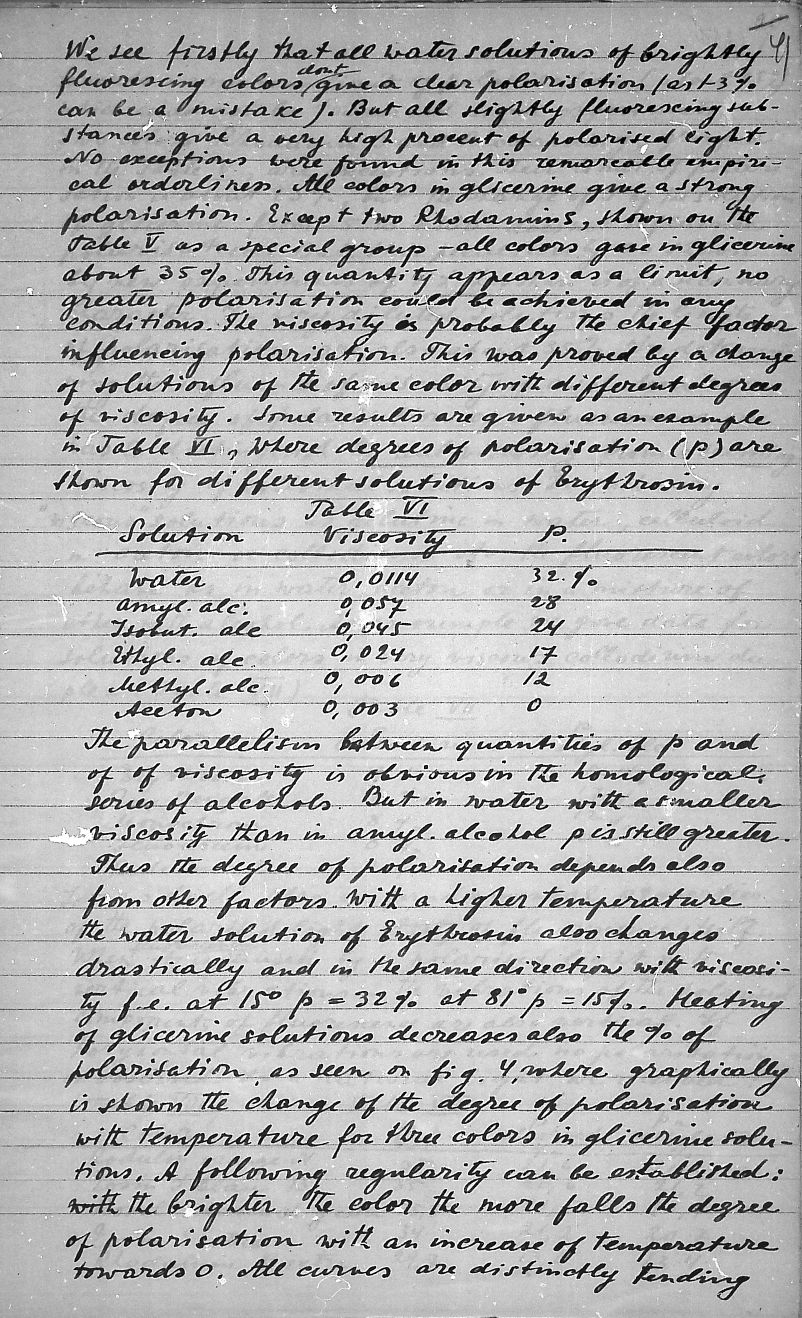 4
We see firstly that all water solutions of brightly
fluorescing colors dont give a clear polarisation (est 3%
can be a mistake). But all slightly fluorescing sub-
stances give a very high procent of polarised light.
No exceptions were found in this remarcable empiri-
cal orderliness. All colors in glicerine give a strong
polarisation. Except two Rhodamins, shown on the
Table V as a special group – all colors gave in glicerine
about 35%. This quantity appears as a limit, no
greater polarisation could be achieved in any
conditions. The viscosity is probably the chief factor
influencing polarisation. This was proved by a change
of solutions of the same color with different degrees
of viscosity. Some results are given as an example
in Table VI, where degrees of polarisation (p) are
shown for different solutions of Erythrosin.
Table VI
Solution Viscosity P.
Water 0,0114 32.%
amyl. alc. 0,057 28
Isobut. alc 0,045 24
Ethyl. alc 0,024 17
Methyl. alc. 0,006 12
Aceton 0,003 0
The parallelism between quantities of p and
of of viscosity is obvious in the homological
series of alcohols. But in water with a smaller
viscosity than in amyl. alcohol p is still greater.
Thus the degree of polarisation depends also
from other factors. With a higher temperature
the water solution of Erythrosin also changes
drastically and in the same direction with viscosi-
ty f.e. at 15° p = 32% at 81° p = 15%. Heating
of glicerine solutions decreases also the % of
polarisation, as seen on fig. 4, where graphically
is shown the change of the degree of polarisation
with temperature for three colors in glicerine solu-
tions. A following regularity can be established:
with the brighter the color the more falls the degree
of polarisation with an increase of temperature
towards 0. All curves are distinctly tending